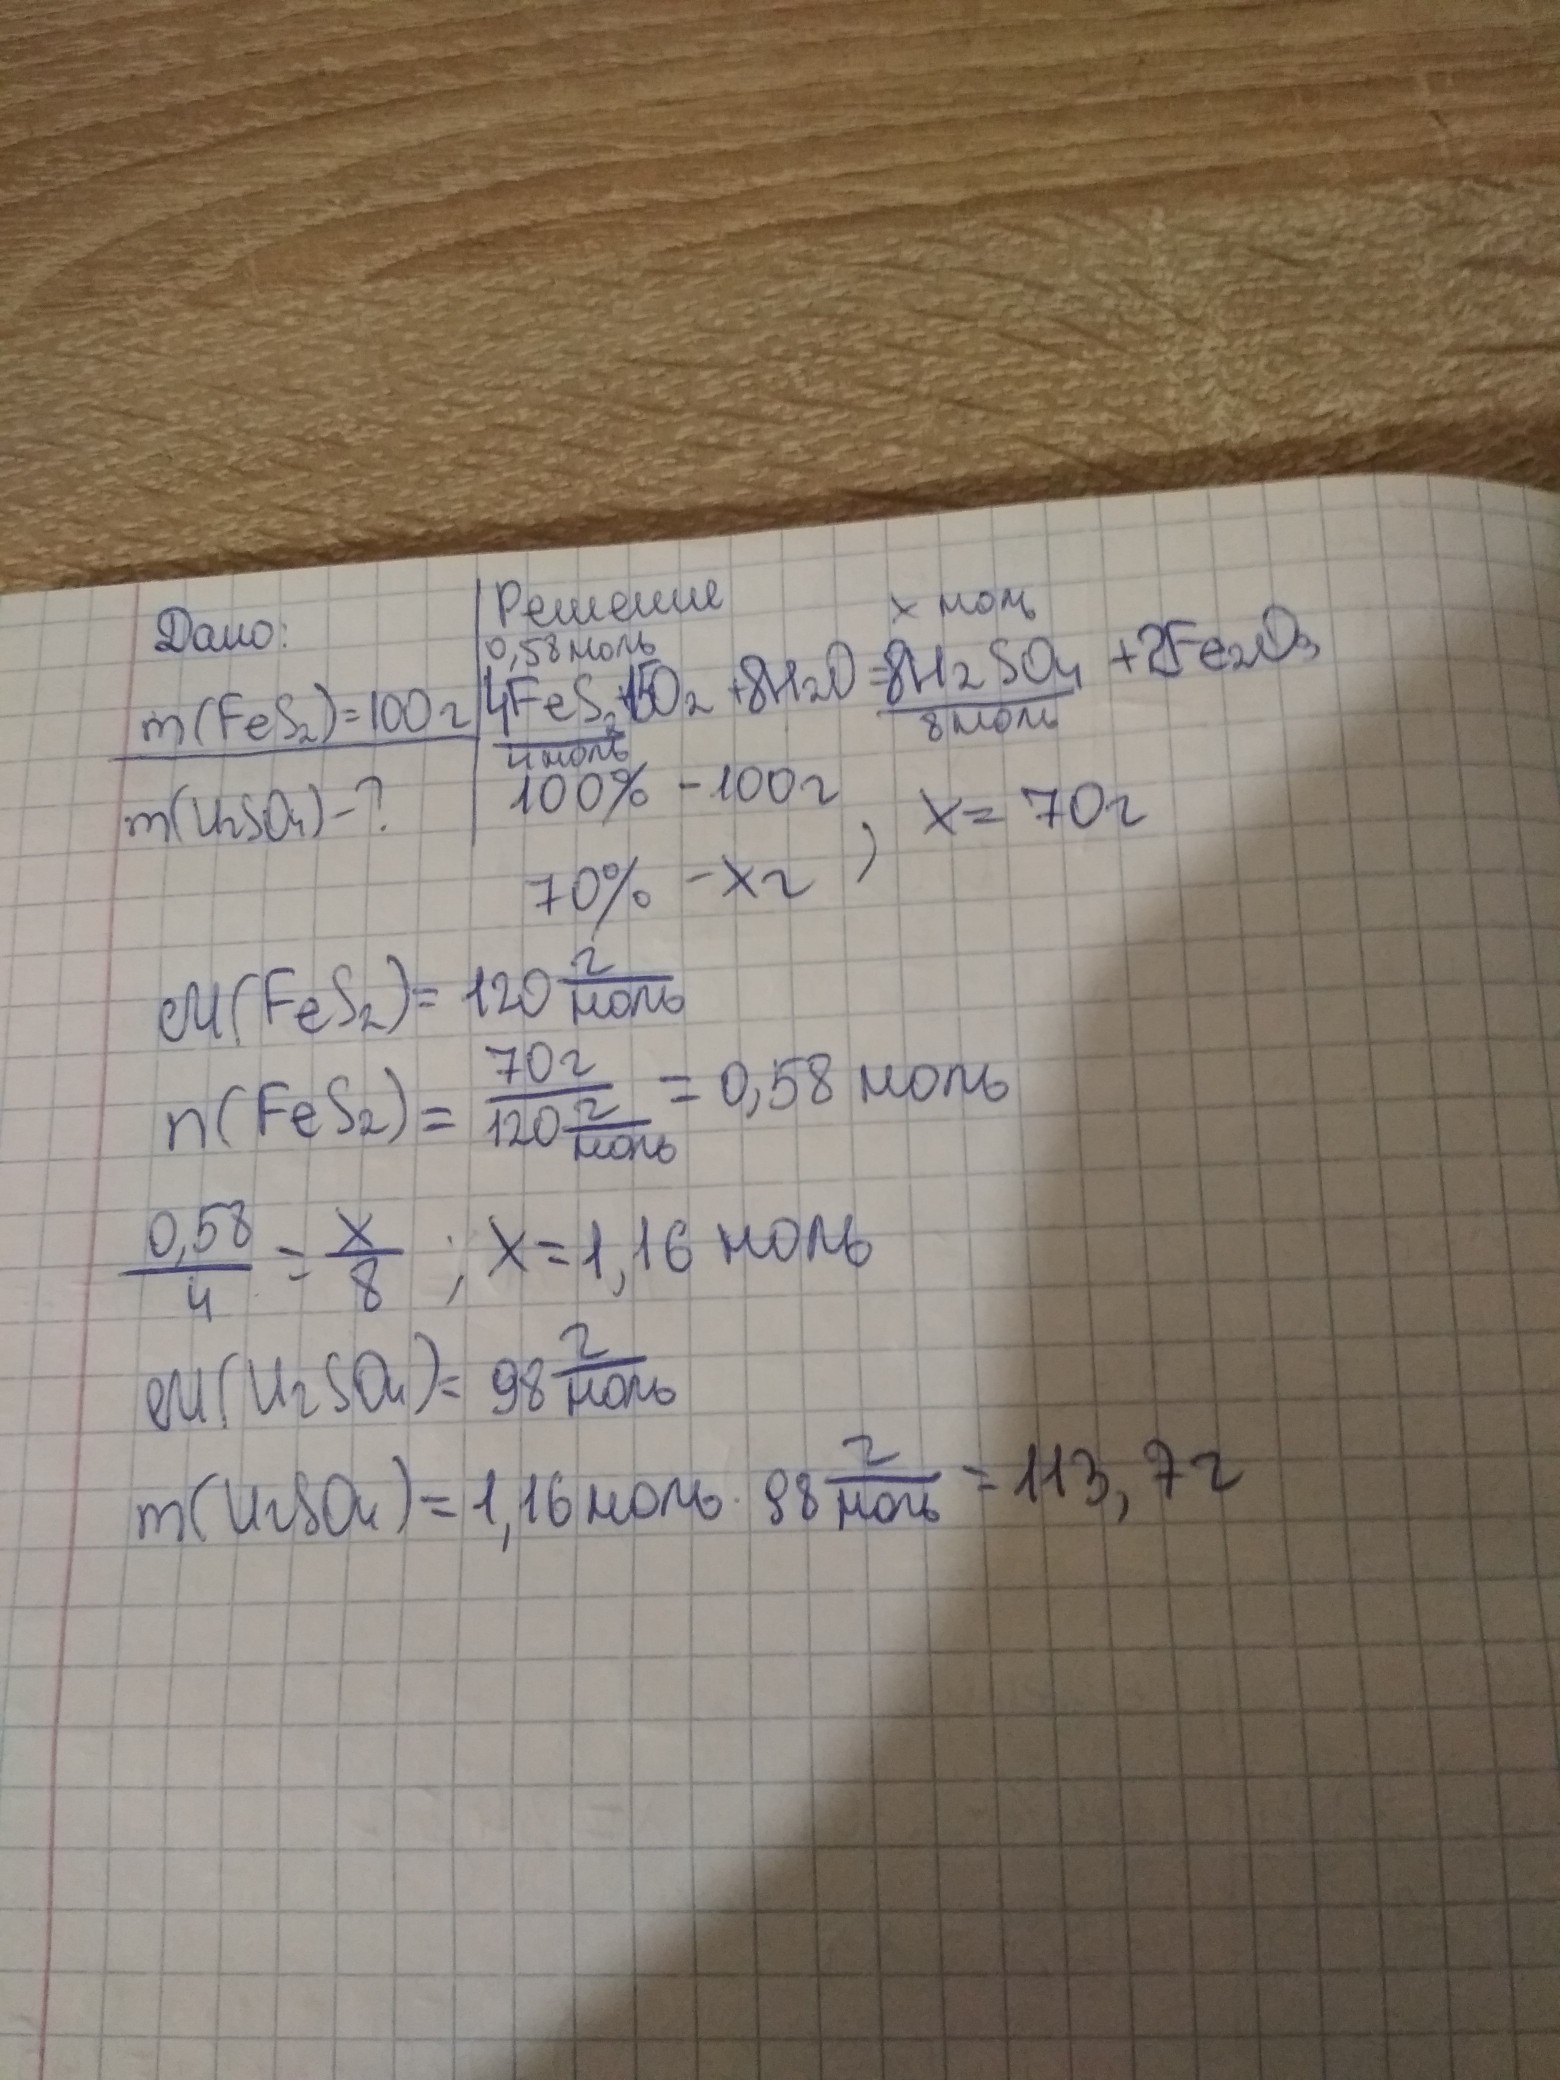 Дано:
m(FeS₂)=100г
m(H₂SO₄)-?
Решение
0,58 моль
x моль
4FeS₂+15O₂+8H₂O=8H₂SO₄+2Fe₂O₃
4 моль
8 моль
100% - 100г
70% - xг ; x=70г
M(FeS₂)=120 г/моль
n(FeS₂)= 70г / 120 г/моль = 0,58 моль
0,58/4 = x/8 ; x=1,16 моль
M(H₂SO₄)= 98 г/моль
m(H₂SO₄)=1,16 моль · 98 г/моль = 113,7г